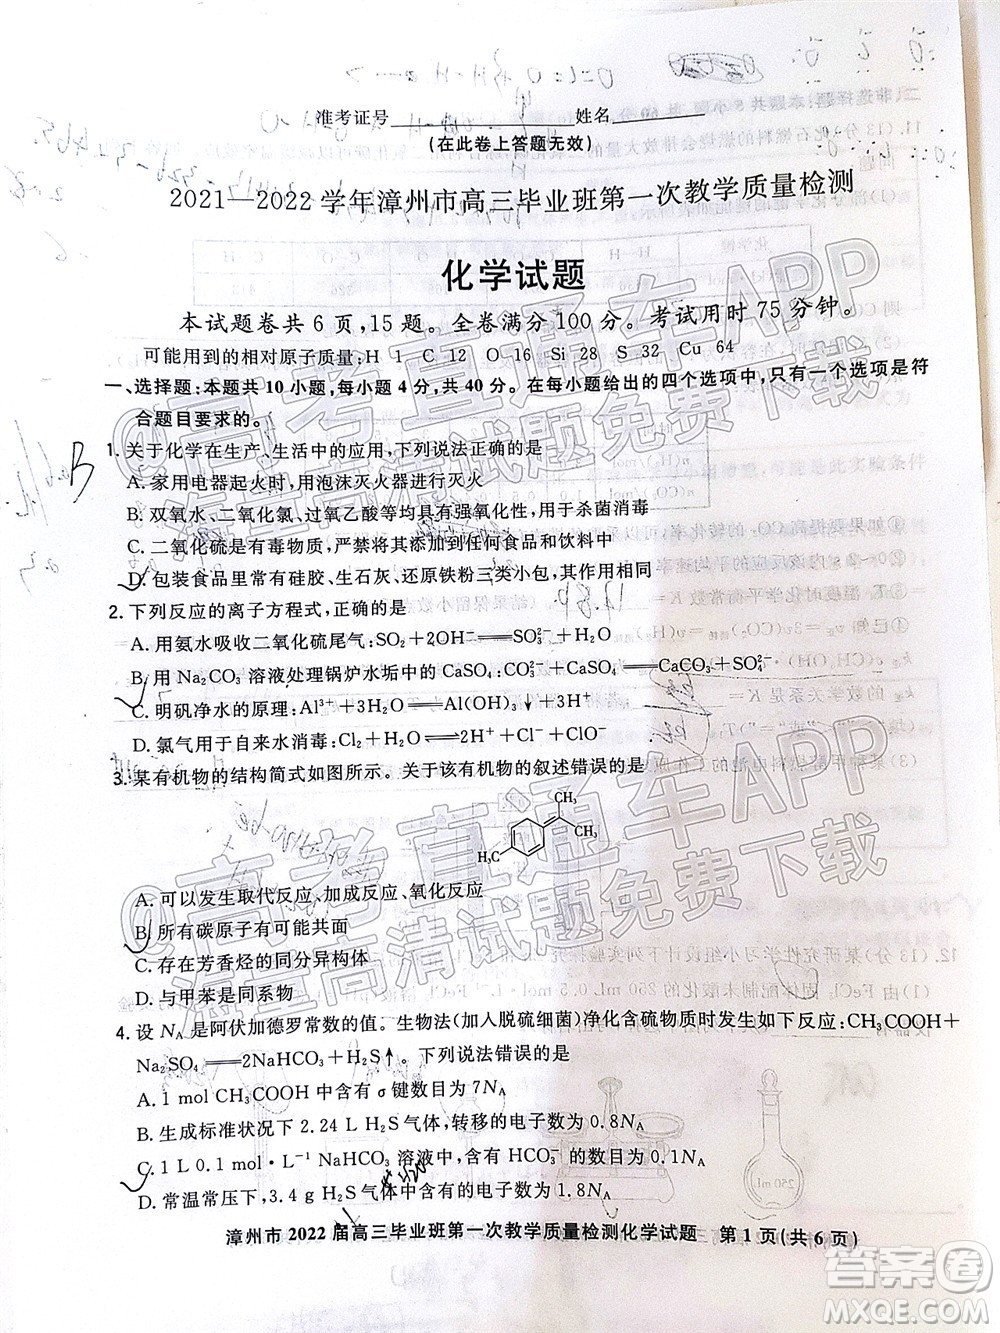 准考证号 姓名
(在此卷上答题无效)
2021—2022学年漳州市高三毕业班第一次教学质量检测
化学试题
本试题卷共6页,15题。全卷满分100分。考试用时75分钟。
可能用到的相对原子质量:H 1 C 12 O 16 Si 28 S 32 Cu 64
一、选择题:本题共10小题,每小题4分,共40分。在每小题给出的四个选项中,只有一个选项是符
合题目要求的。
1.关于化学在生产、生活中的应用,下列说法正确的是
A.家用电器起火时,用泡沫灭火器进行灭火
B.双氧水、二氧化氯、过氧乙酸等均具有强氧化性,用于杀菌消毒
C.二氧化硫是有毒物质,严禁将其添加到任何食品和饮料中
D.包装食品里常有硅胶、生石灰、还原铁粉三类小包,其作用相同
2.下列反应的离子方程式,正确的是
A.用氨水吸收二氧化硫尾气:SO₂+2OH⁻═SO₃²⁻+H₂O
B.用Na₂CO₃溶液处理锅炉水垢中的CaSO₄:CO₃²⁻+CaSO₄═CaCO₃+SO₄²⁻
C.明矾净水的原理:Al³⁺+3H₂O═Al(OH)₃↓+3H⁺
D.氯气用于自来水消毒:Cl₂+H₂O═2H⁺+Cl⁻+ClO⁻
3.某有机物的结构简式如图所示。关于该有机物的叙述错误的是
CH₃
CH₃
H₃C
A.可以发生取代反应、加成反应、氧化反应
B.所有碳原子有可能共面
C.存在芳香烃的同分异构体
D.与甲苯是同系物
4.设Nₐ是阿伏加德罗常数的值。生物法(加入脱硫细菌)净化含硫物质时发生如下反应:CH₃COOH+
Na₂SO₄═2NaHCO₃+H₂S↑。下列说法错误的是
A.1 mol CH₃COOH中含有σ键数目为7Nₐ
B.生成标准状况下2.24 L H₂S气体,转移的电子数目为0.8Nₐ
C.1 L 0.1 mol·L⁻¹ NaHCO₃溶液中,含有HCO₃⁻的数目为0.1Nₐ
D.常温常压下,3.4 g H₂S气体中含有的电子数目为1.8Nₐ
漳州市2022届高三毕业班第一次教学质量检测化学试题 第1页(共6页)
@高考直通车APP
海量高清试题免费下载
@高考直通车APP
海量高清试题免费下载
答案圈
MXQE.COM